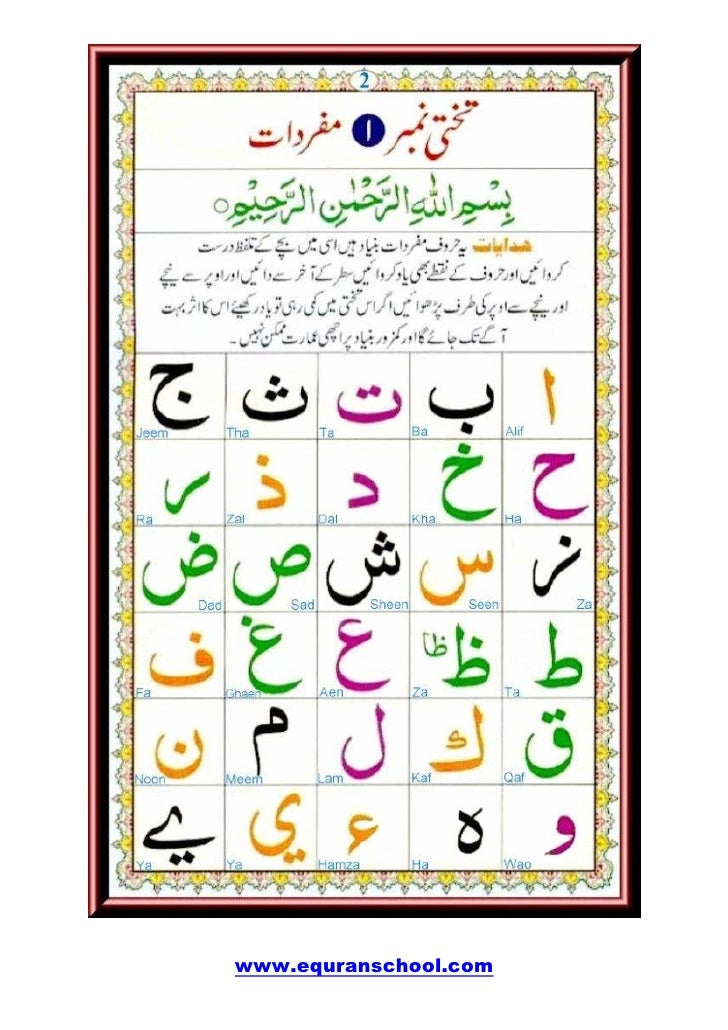 2
تختی نمبر ۱ مفردات
بِسْمِ اللهِ الرَّحْمٰنِ الرَّحِيْمِ ○
ھدایات یہ حروف مفردات بنیاد ہیں اسی میں بچے کے تلفظ درست
کروائیں اور حروف کے نقطے بھی یاد کروائیں سطر کے آخر سے دائیں اور اوپر سے نیچے
اور نیچے سے اوپر کی طرف پڑھوائیں اگر اس تختی میں کمی رہی تو یاد رکھیئے اس کا اثر بہت
آگے تک جائے گا اور کمزور بنیاد پر اچھی عمارت ممکن نہیں۔
ا ب ت ث ج
Alif Ba Ta Tha Jeem
ح خ د ذ ر
Ha Kha Dal Zal Ra
ز س ش ص ض
Za Seen Sheen Sad Dad
ط ظ ظا ع غ ف
Ta Za Aen Ghaen Fa
ق ك ل م ن
Qaf Kaf Lam Meem Noon
و ه ء ي ے
Wao Ha Hamza Ya Ya
www.equranschool.com